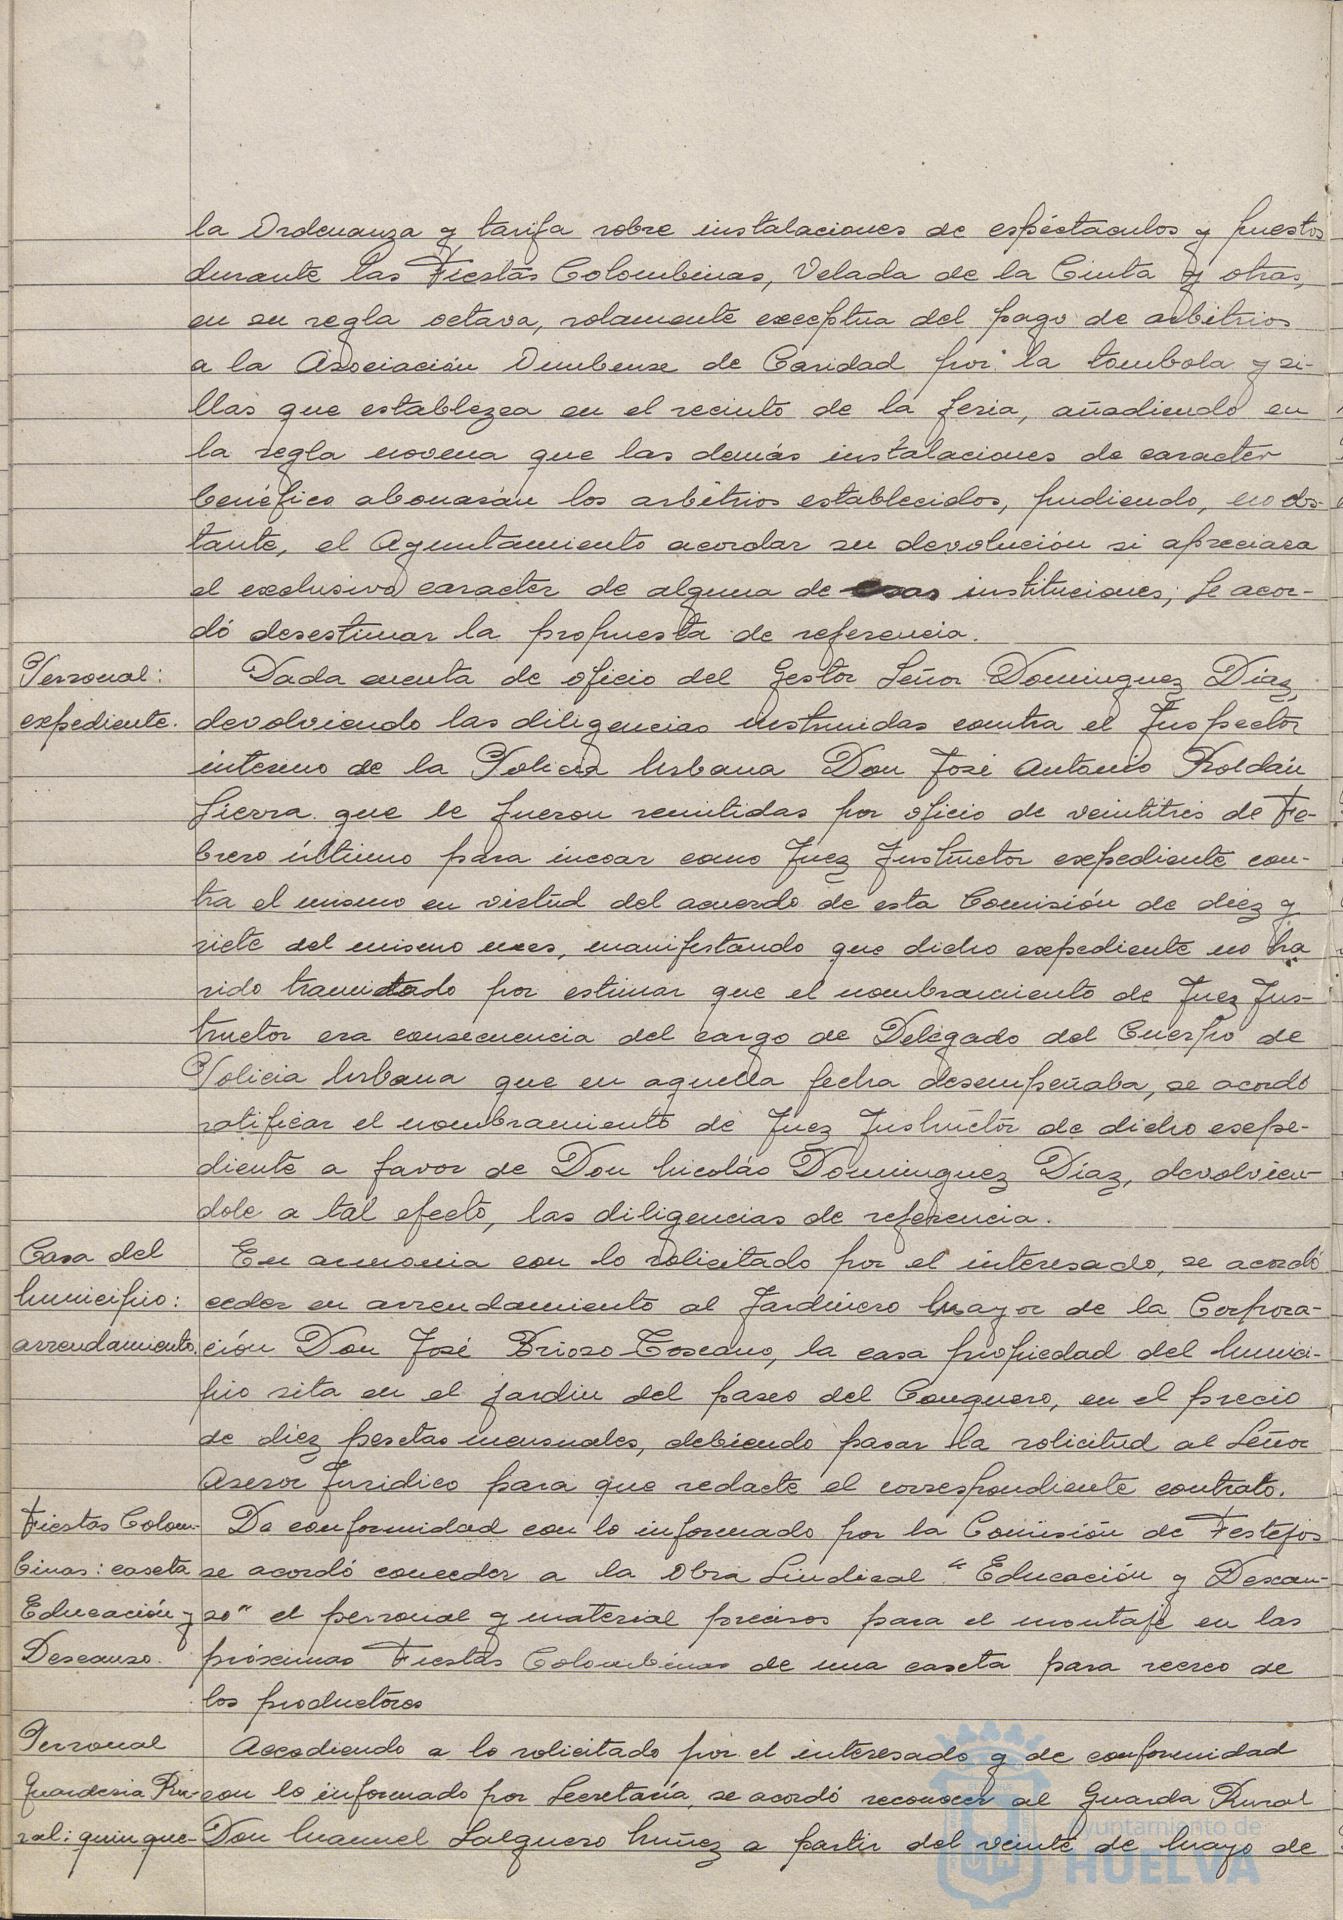 la Ordenanza y tarifa sobre instalaciones de espéctaculos y puestos
durante las Fiestas Colombinas, Velada de la Cinta y otras,
en su regla octava, solamente exceptua del pago de arbitrios
a la Asociación Onubense de Caridad por la tombola y si-
llas que establezca en el recinto de la feria, añadiendo en
la regla novena que las demás instalaciones de caracter
benéfico abonarán los arbitrios establecidos, pudiendo, no obs-
tante, el Ayuntamiento acordar su devolución si apreciara
el exclusivo caracter de alguna de esas instituciones; Se acor-
dó desestimar la propuesta de referencia.
Personal:
expediente.
Dada cuenta de oficio del Gestor Señor Dominguez Díaz,
devolviendo las diligencias instruidas contra el Inspector
interino de la Policia Urbana Don José Antonio Roldán
Sierra que le fueron remitidas por oficio de veintitrés de Fe-
brero último para incoar como Juez Instructor expediente con-
tra el mismo en virtud del acuerdo de esta Comisión de diez y
siete del mismo mes, manifestando que dicho expediente no ha
sido tramitado por estimar que el nombramiento de Juez Ins-
tructor era consecuencia del cargo de Delegado del Cuerpo de
Policia Urbana que en aquella fecha desempeñaba, se acordó
ratificar el nombramiento de Juez Instructor de dicho expe-
diente a favor de Don Nicolás Dominguez Díaz, devolvien-
dole a tal efecto, las diligencias de referencia.
Casa del
Municipio:
arrendamiento.
En armonia con lo solicitado por el interesado, se acordó
ceder en arrendamiento al Jardinero Mayor de la Corpora-
ción Don José Brioso Toscano, la casa propiedad del Munici-
pio sita en el jardin del paseo del Conquero, en el precio
de diez pesetas mensuales, debiendo pasar la solicitud al Señor
Asesor Juridico para que redacte el correspondiente contrato.
Fiestas Colom-
binas: caseta
Educación y
Descanso.
De conformidad con lo informado por la Comisión de Festejos
se acordó conceder a la Obra Sindical "Educación y Descan-
so" el personal y material precisos para el montaje en las
próximas Fiestas Colombinas de una caseta para recreo de
los productores
Personal
Guarderia Ru-
ral: quinque-
Accediendo a lo solicitado por el interesado y de conformidad
con lo informado por Secretaría, se acordó reconocer al Guarda Rural
Don Manuel Salguero Muñez a partir del veinte de Mayo de
ayuntamiento de
HUELVA